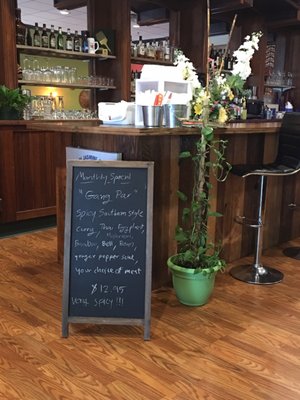 Monthly Special
"Gang Par"
Spicy Southern Style
Curry, Thai Eggplant,
Mushroom,
Bamboo, Bell, Beans,
younger pepper seed,
your choice of meat
$12.95
VERY SPICY!!!